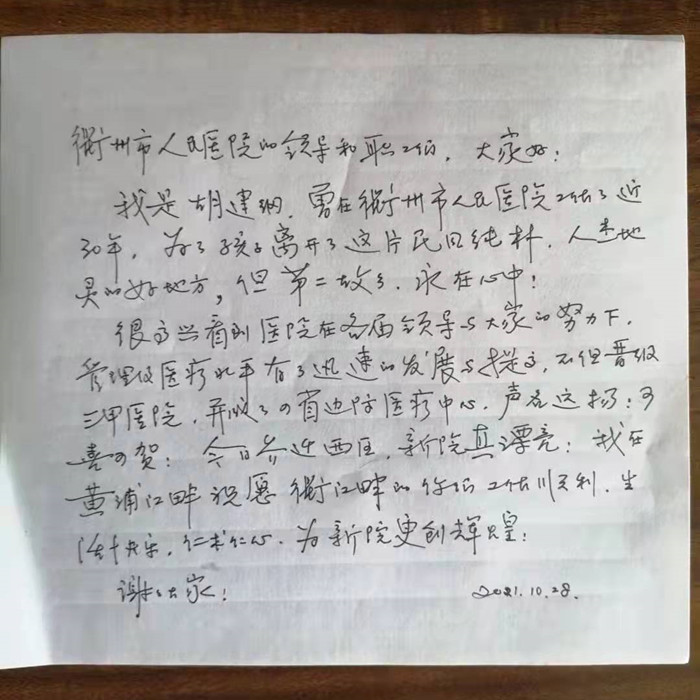 衢州市人民医院的领导和职工们，大家好！
我是胡建纲，曾在衢州市人民医院工作了近
30年，为了孩子离开了这片民风纯朴，人杰地
灵的好地方，但第二故乡，永在心中！
很高兴看到医院在各届领导与大家的努力下，
管理及医疗水平有了迅速的发展与提高，不但晋级
三甲医院，并成了四省边际医疗中心，声名远扬！可
喜可贺！今日乔迁西区，新院真漂亮！我在
黄浦江畔祝愿衢江畔的你们工作顺利，生
活快乐，仁术仁心，为新院史创辉煌！
谢谢大家！
2021.10.28.